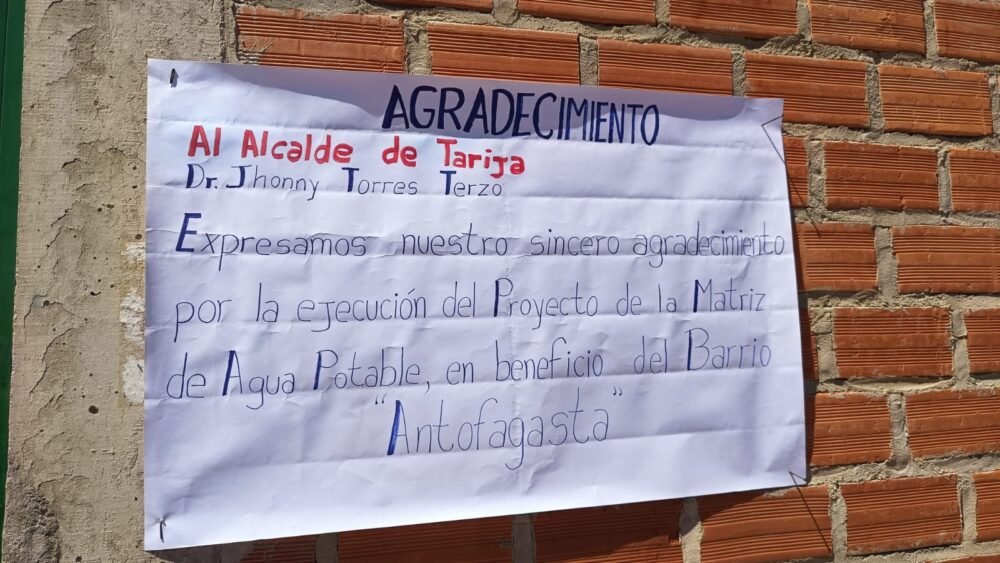 AGRADECIMIENTO
Al Alcalde de Tarija
Dr. Jhonny Torres Terzo
Expresamos nuestro sincero agradecimiento
por la ejecución del Proyecto de la Matriz
de Agua Potable, en beneficio del Barrio
"Antofagasta"